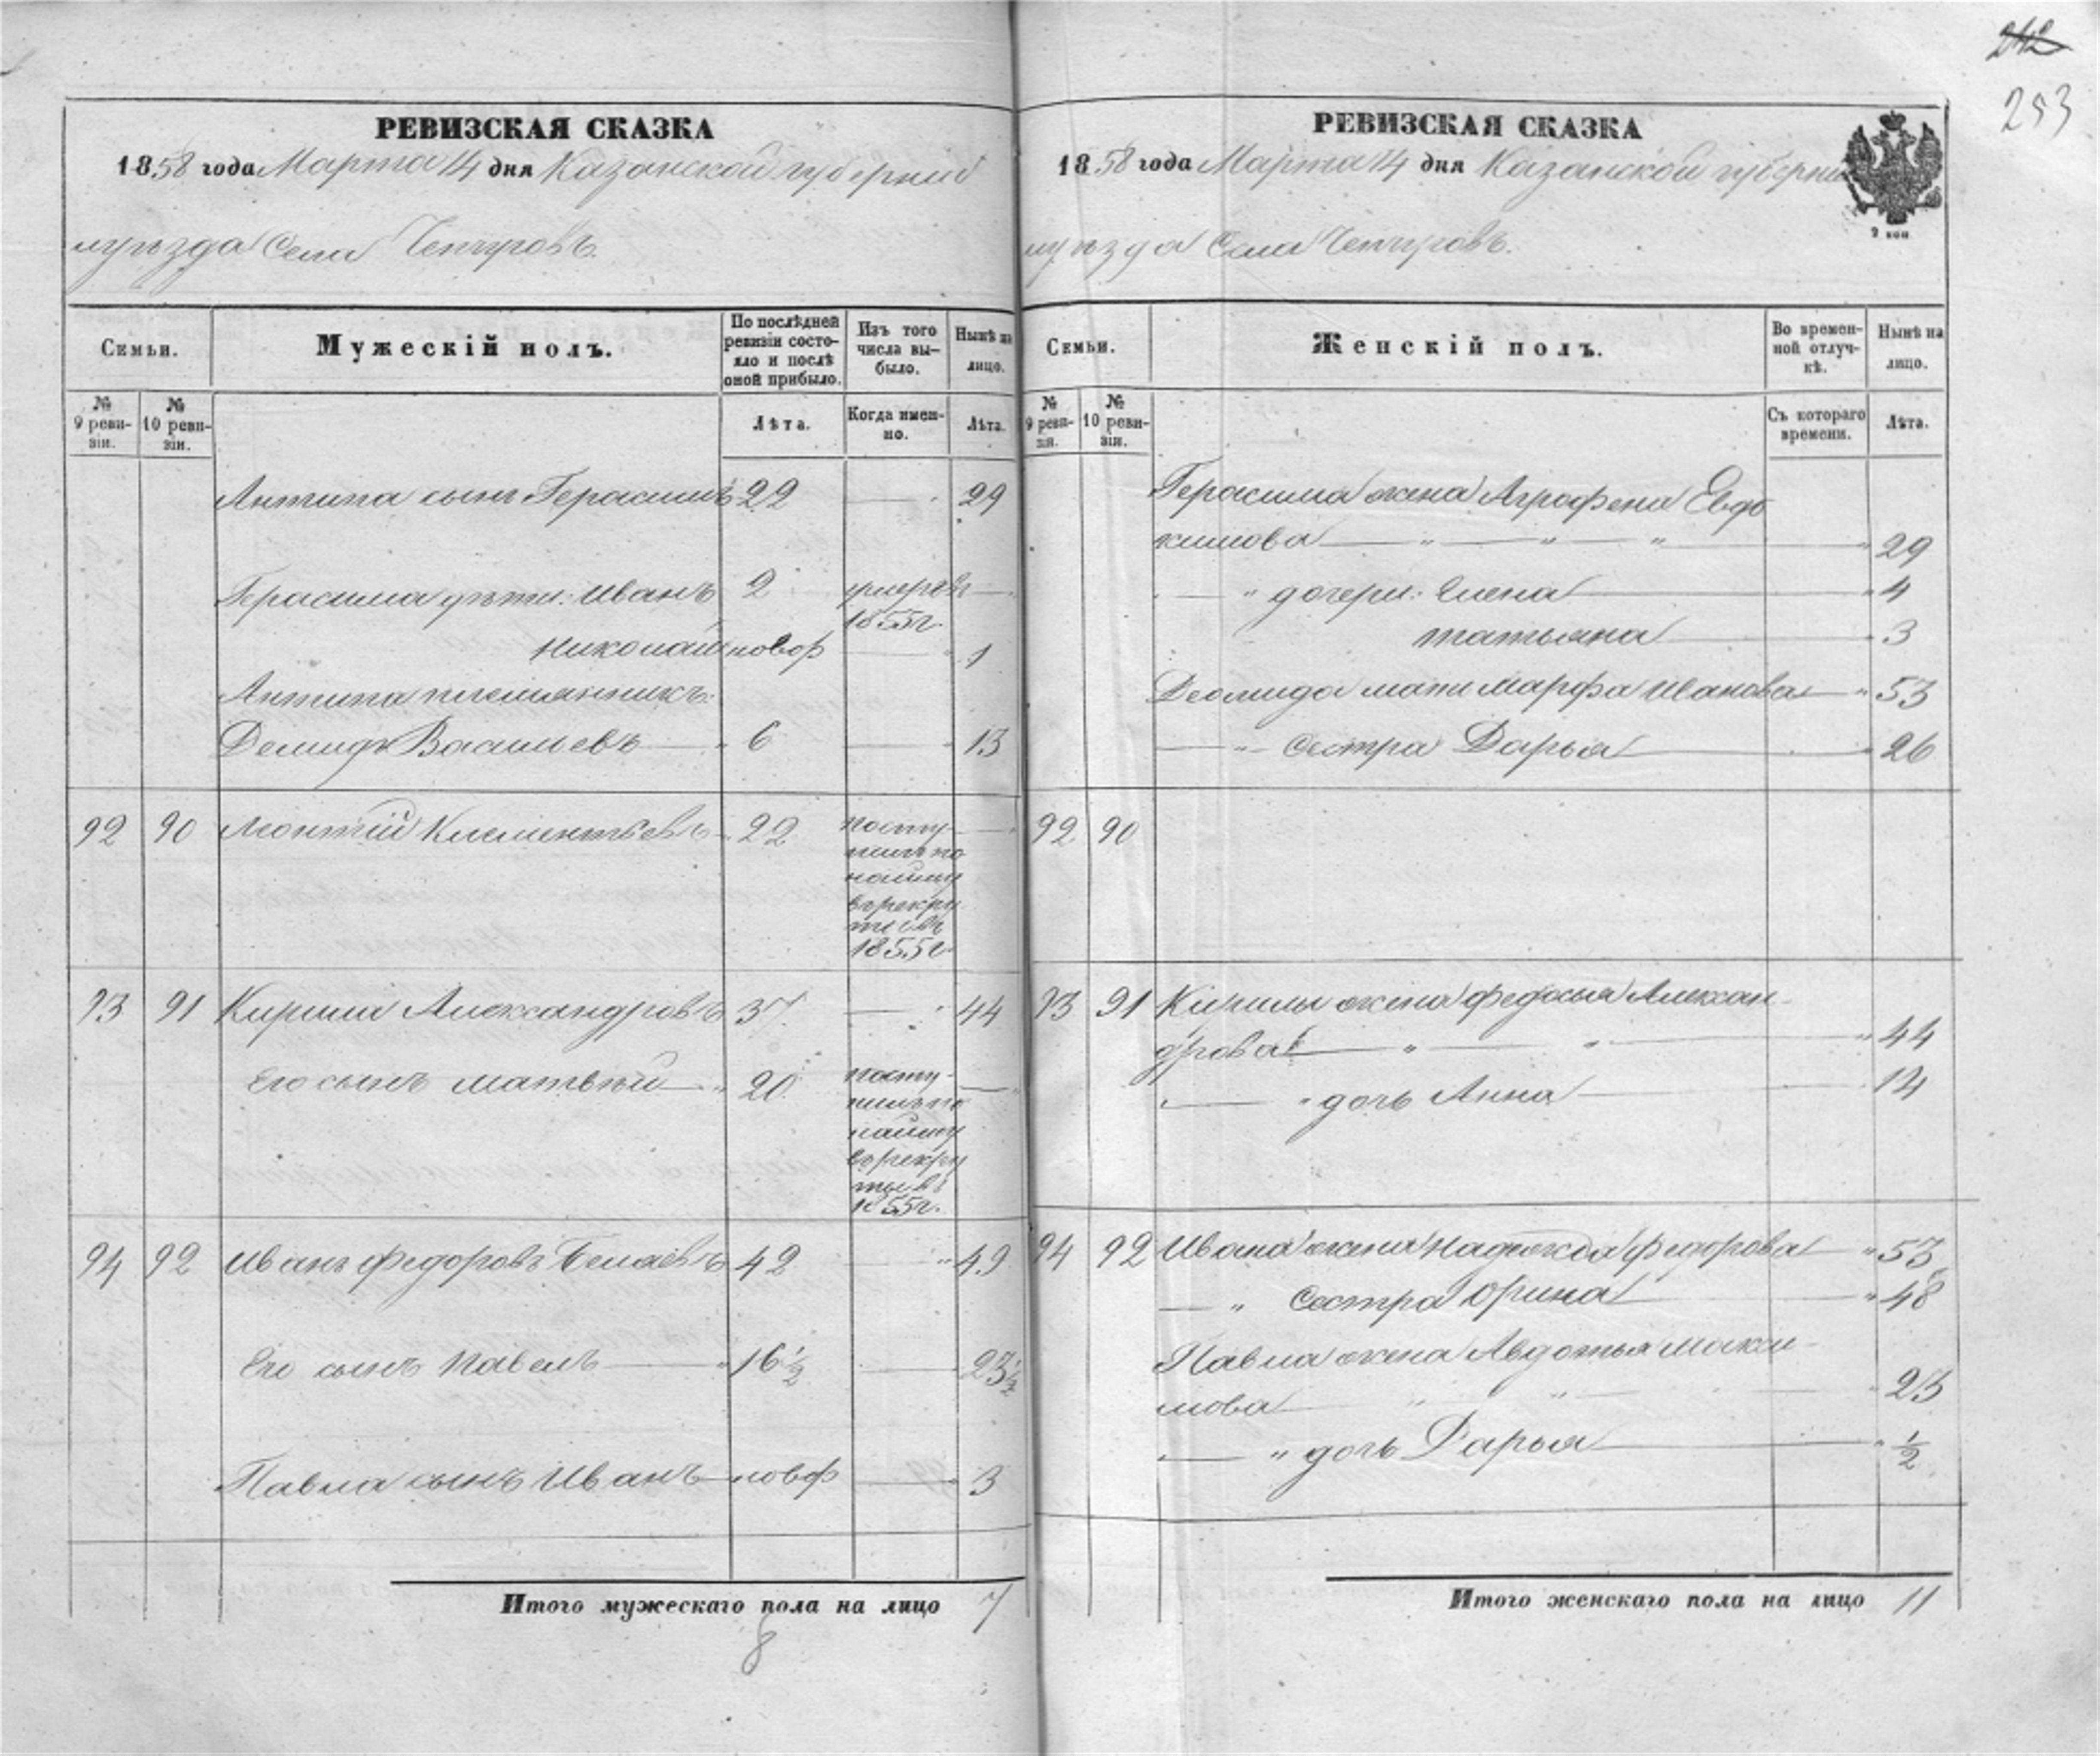 242
253
РЕВИЗСКАЯ СКАЗКА
1858 года Марта 14 дня Казанской губерніи
и уѣзда Села Чепчуговъ.
Семьи. Мужескій полъ. По послѣдней ревизіи состояло и послѣ оной прибыло. Изъ того числа выбыло. Нынѣ на лицо.
№ 9 ревизіи. № 10 ревизіи. Лѣта. Когда именно. Лѣта.
Антипа сынъ Герасимъ 22 — 29
Герасима дѣти: Иванъ 2 умеръ въ —
1855 г.
Николай новор — 1
Антипа племянникъ:
Демидъ Васильевъ — 6 — 13
92 90 Леонтій Клементьевъ 22 посту- —
пилъ по
найму
въ рекру
ты въ
1855 г.
93 91 Кирила Александровъ 37 — 44
Его сынъ Матвѣй — 20 посту- —
пилъ по
найму
въ рекру
ты въ
1855 г.
94 92 Иванъ Федоровъ Беляевъ 42 — 49
Его сынъ Павелъ — 16 1/2 — 23 1/2
Павла сынъ Иванъ — новор — 3
Итого мужескаго пола на лицо 7
8
РЕВИЗСКАЯ СКАЗКА
1858 года Марта 14 дня Казанской губерніи
и уѣзда Села Чепчуговъ.
2 коп
Семьи. Женскій полъ. Во временной отлучкѣ. Нынѣ на лицо.
№ 9 ревизіи. № 10 ревизіи. Съ котораго времени. Лѣта.
Герасима жена Аграфена Евдо
кимова — " — " — " — 29
— " дочери: Елена — " 4
Татьяна — " 3
Деомида мати Марфа Иванова — " 53
— " — Сестра Дарья — " 26
92 90
93 91 Кирилы жена Федосья Алексан-
дрова — " — " — " 44
— " дочь Анна — 14
94 92 Ивана жена Надежда Федорова — " 53
— " Сестра Орина — " 48
Павла жена Авдотья Макси-
мова — " — " — 23
— " дочь Дарья — " 1/2
Итого женскаго пола на лицо 11